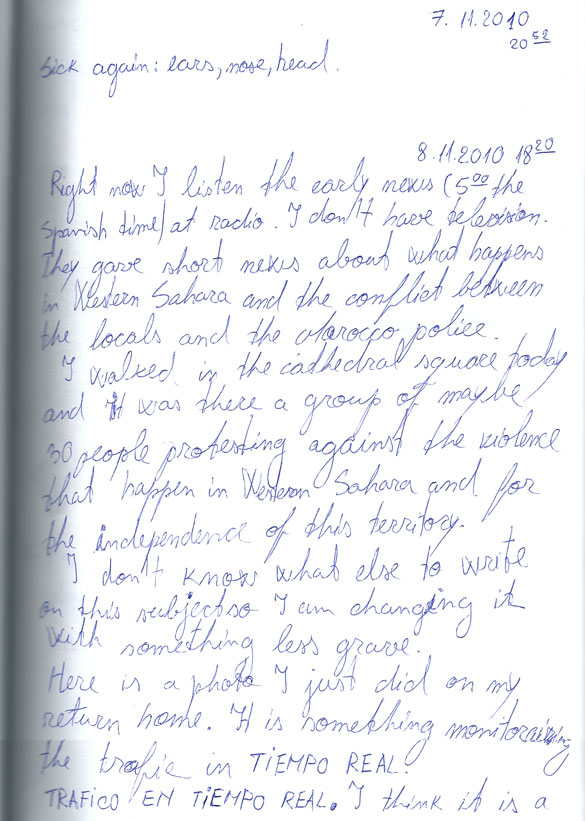 7. 11.2010
20 52
Sick again: ears, nose, head.
8.11.2010 18 20
Right now I listen the early news (5 00 the
Spanish time) at radio. I don't have television.
They gave short news about what happens
in Western Sahara and the conflict between
the locals and the Marocco police.
I walked in the cathedral square today
and it was there a group of maybe
30 people protesting against the violence
that happen in Western Sahara and for
the independence of this territory.
I don't know what else to write
on this subject so I am changing it
with something less grave.
Here is a photo I just did on my
return home. It is something monitoraining
the trafic in TIEMPO REAL.
TRAFICO EN TIEMPO REAL. I think it is a